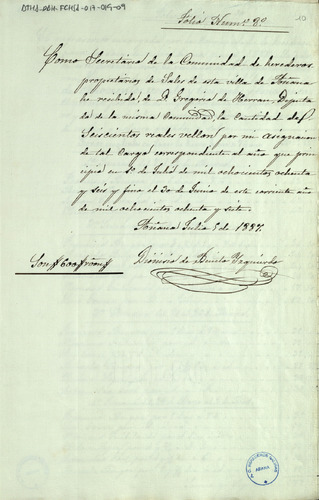 DTHA-DAH-FCHSA-017-019-09
Folio Numº 9º
10
Como Secretario de la Comunidad de herederos
propietarios de Sales de esta villa de Añana
he recibido, de D. Gregorio de Herran, Diputado
de la misma Comunidad la Cantidad de
Seiscientos reales vellon, por mi asignacion
de tal Cargo correspondiente al año que prin-
cipió en 1º de Julio de mil ochocientos ochenta
y seis y finó el 30 de Junio de este corriente año
de mil ochocientos ochenta y siete.
Añana Julio 5 de 1887.
Son 600
Dionisio de Benito Yzquierdo